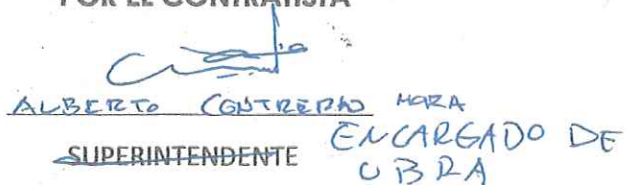 POR EL CONTRATISTA
ALBERTO CONTRERAS MORA
SUPERINTENDENTE ENCARGADO DE
OBRA